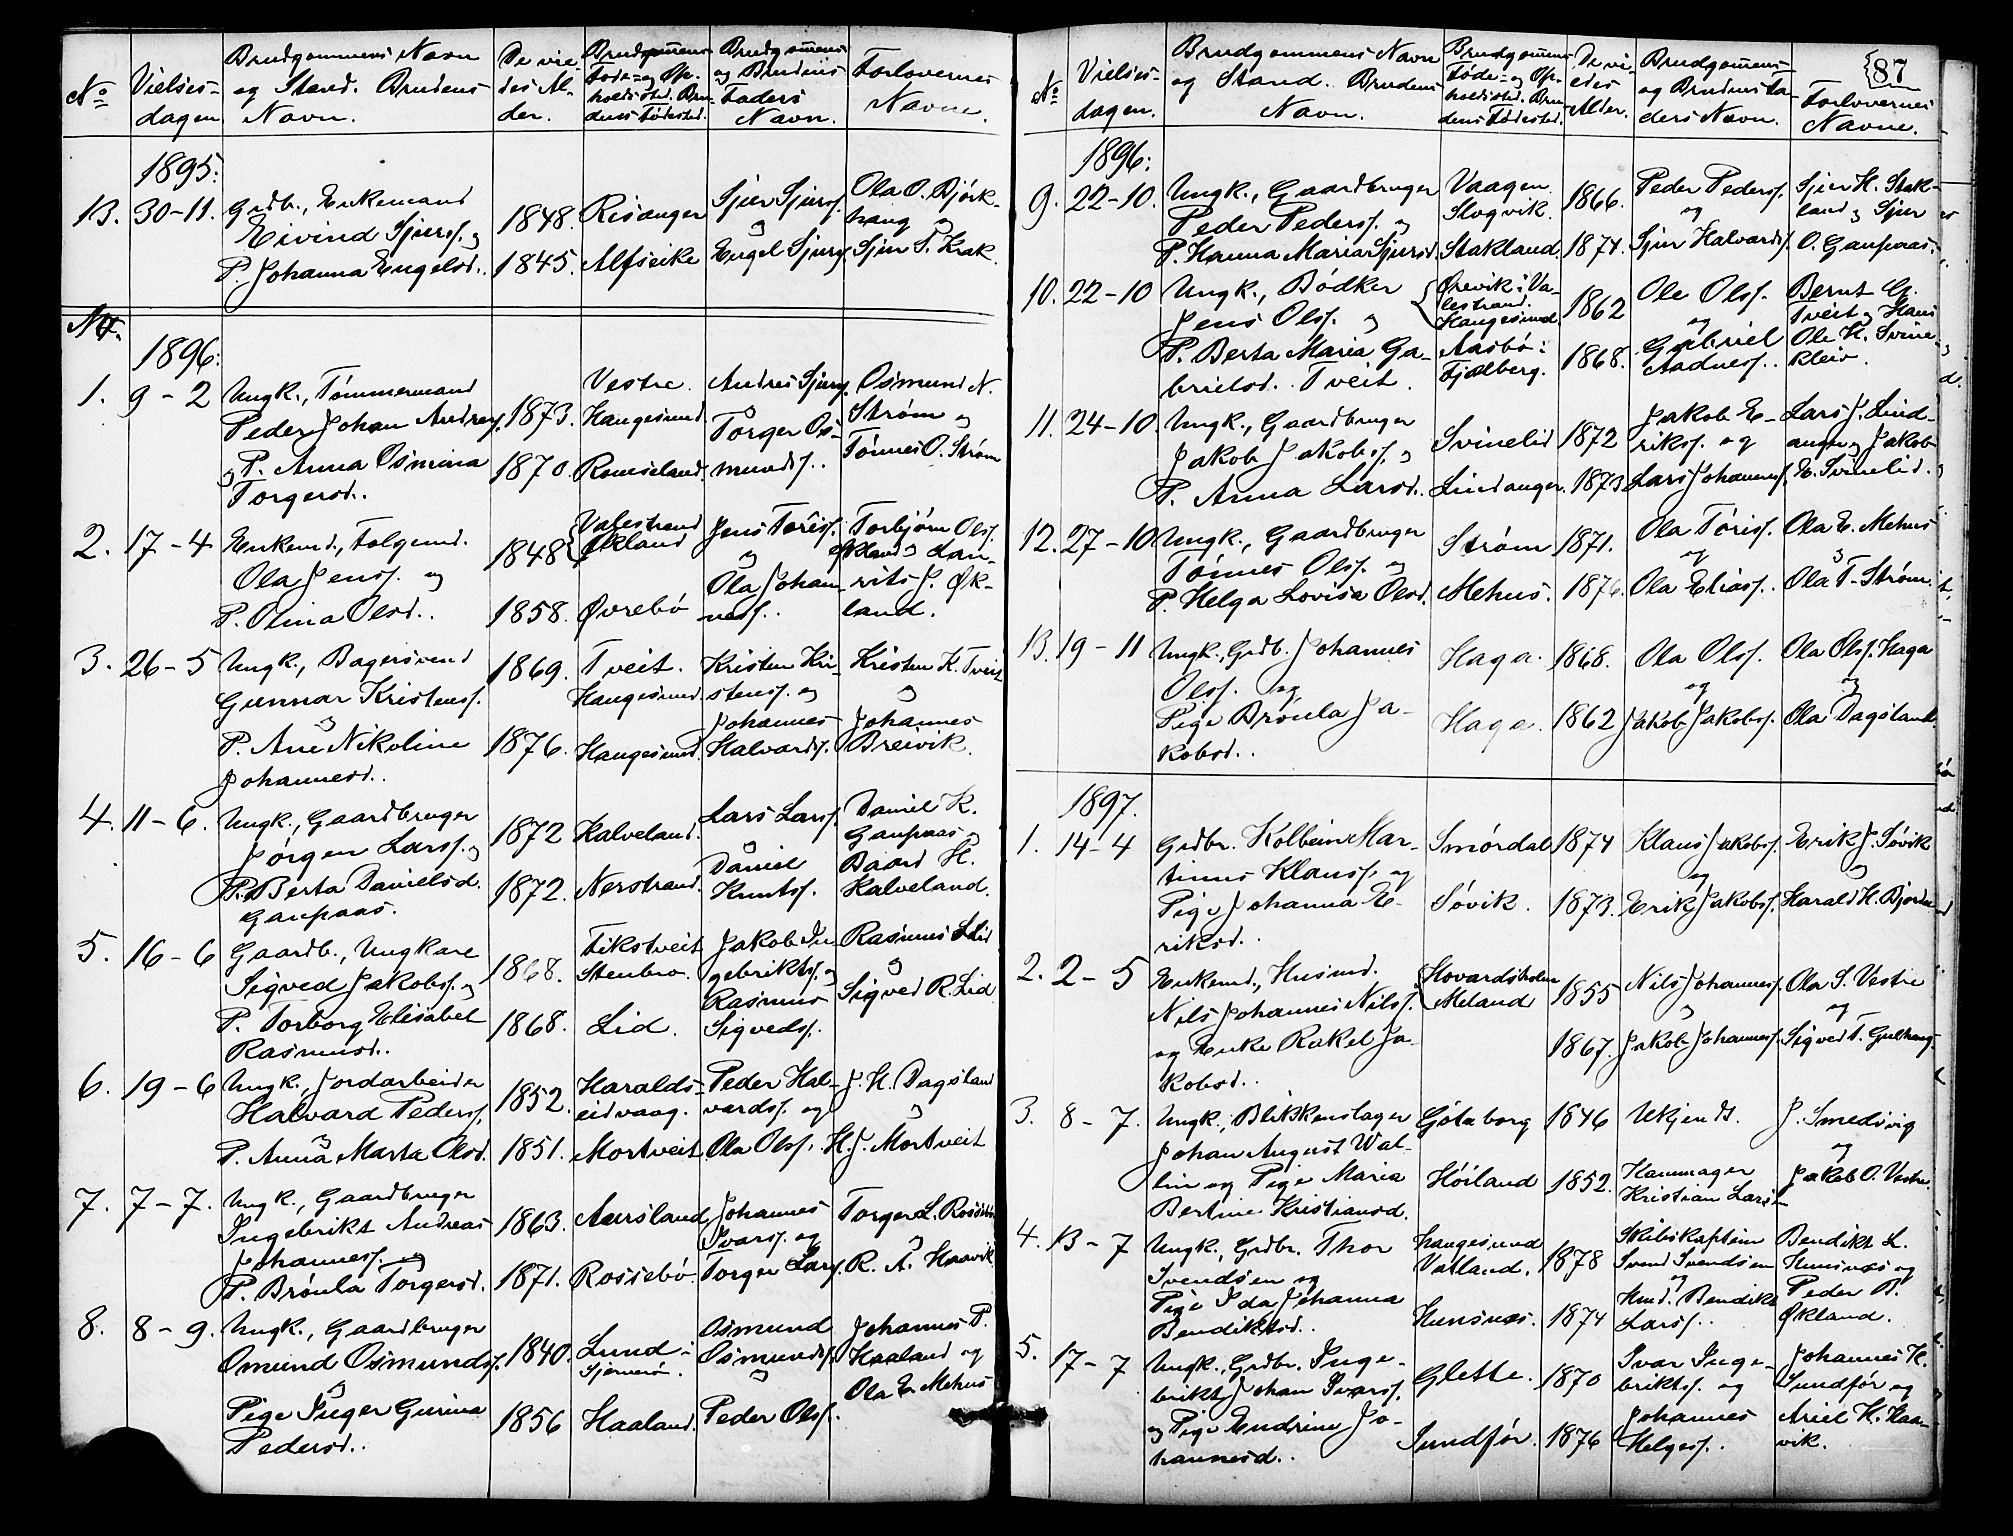 No
Vielses-
dagen
Brudgommens Navn
og Stand. Brudens
Navn.
De vie-
des Al-
der.
Brudgommens
Føde- og Op-
holdssted. Bru-
dens Fødested.
Brudgommens
og Brudens
Faders
Navn.
Forlovernes
Navne.
1895:
13. 30-11. Grdb., Enkemand
Eivind Sjurs. og
P. Johanna Engelsd..
1848. Risanger
1845. Alfseike
Sjur Sjurs.
og
Engel Sjurs.
Ola O. Bjørk-
haug og
Sjur S. Krak.
No.
1896:
1. 9-2 Ungk., Tømmermand
Peder Johan Andreas.
og P. Anna Osmina
Torgersd..
1873.
1870.
Vestre.
Haugesund.
Romseland.
Andres Sjurs.
og
Torger Os-
munds..
Osmund N.
Strøm og
Tønnes O. Strøm
2. 17-4 Enkemd., Folgemd.
Ola Jenss. og
P. Olina Olsd..
1848
1858.
Valestrand
Økland
Øvrebø
Jens Toress.
og
Ola Johan-
ness..
Torbjørn Olss.
Økland og Lau-
rits J. Øk-
land.
3. 26-5 Ungk., Bagersvend
Gunnar Kristens.
og
P. Ane Nikoline
Johannesd..
1869.
1876.
Tveit.
Haugesund.
Haugesund.
Kristen Kri-
stens. og
Johannes
Halvards.
Kristen K. Tveit
og
Johannes
Breivik.
4. 11-6. Ungk., Gaardbruger
Jørgen Larss. og
P. Berta Danielsd.
Gaupaas.
1872
1872.
Kalveland.
Nerstrand.
Lars Larss.
og
Daniel
Knuts.
Daniel K.
Gaupaas og
Baard H.
Kalveland.
5. 16-6 Gaardb., Ungkare
Sigved Jakobs. og
P. Torborg Elisabet
Rasmusd..
1868.
1868.
Fikstveit
Stenbro.
Lid.
Jakob In-
gebrikts. og
Rasmus
Sigveds.
Rasmus S Lid
og
Sigved R. Lid
6. 19-6 Ungk., Jordarbeider
Halvard Peders.
og
P. Anna Marta Olsd.
1852.
1851.
Haralds-
eidvaag.
Mortveit
Peder Hal-
vards. og
Ola Olss.
J. H. Dagsland
og
H. J. Mortveit
7. 7-7. Ungk., Gaardbruger
Ingebrikt Andreas
Johanness. og
P. Brønla Torgersd.
1863.
1871.
Aarsland
Rossebø
Johannes
Ivars. og
Torger Lars.
Torger L. Rossebø
og
R. A. Haavik
8. 8-9. Ungk., Gaardbruger
Omund Osmunds.
og
Pige Inger Gurina
Pedersd..
1840.
1856
Lund-
Sjernerø.
Haaland.
Osmund
Osmunds.
og
Peder Olss.
Johannes P.
Haaland og
Ola E. Mehus
87
No
Vielses-
dagen.
Brudgommens Navn
og Stand. Brudens
Navn.
Brudgommens
Føde- og Op-
holdssted. Bru-
dens Fødested.
De vi-
edes
Alder.
Brudgommens
og Brudens Fa-
ders Navn.
Forlovernes
Navne.
1896:
9. 22-10. Ungk., Gaardbruger
Peder Peders. og
P. Hanna Maria Sjursd.
Vaagen.
Slogvik.
Stakland.
1866.
1874.
Peder Peders.
og
Sjur Halvards.
Sjur H. Stak-
land og Sjur
O. Gaupaas.
10. 22-10 Ungk., Bødker
Jens Olss. og
P. Berta Maria Ga-
brielsd. Tveit.
Ørevik i Va-
lestrand.
Haugesund.
Aasbø i
Fjælberg.
1862
1868.
Ole Olss.
og
Gabriel
Aadness..
Bernt G.
Tveit og Hans
Ole H. Svine-
kleiv.
11. 24-10. Ungk., Gaardbruger
Jakob Jakobs. og
P. Anna Larsd.
Svinelid
Lindanger.
1872
1873
Jakob E-
riks. og
Lars Johanness.
Lars J. Lind-
anger og Jakob
E. Svinelid.
12. 27-10. Ungk., Gaardbruger
Tønnes Olss. og
P. Helga Lovisa Olsd.
Strøm
Mehus.
1871.
1876.
Ola Tøriss.
og
Ola Eliass.
Ola E. Mehus
og
Ola T. Strøm.
13. 19-11 Ungk., Grdb. Johannes
Olss. og
Pige Brønla Ja-
kobsd..
Haga.
Haga.
1868.
1862
Ola Olss.
og
Jakob Jakobs.
Ola Olss. Haga
og
Ola Dagsland.
1897.
1. 14-4 Grdbr. Kolbein Mar-
tinus Klaus. og
Pige Johanna E-
riksd..
Smørdal
Søvik.
1874
1873.
Klaus Jakobs.
og
Erik Jakobs.
Erik J. Søvik
og
Harald H. Bjordal
2. 2-5 Enkemd., Husmd.
Nils Johannes Nils.
og Enke Rakel Ja-
kobsd..
Hovardsholm
Meland
1855
1867.
Nils Johanness.
og
Jakob Johanness.
Ola S. Vestre
og
Sigved T. Gulhaug.
3. 8-7. Ungk., Blikkenslager
Johan August Wal-
lin og Pige Maria
Bertine Kristiansd.
Gøteborg
Høiland
1846
1852.
Ukjendt.
Hanmager
Kristian Lars-
J. Smedvig
og
Jakob O. Vestre.
4. 13-7 Ungk., Grdbr. Thor
Svendsen og
Pige Ida Johanna
Bendiktsd..
Haugesund
Vatland.
Hunsnæs.
1878
1874
Skibskaptein
Svend Svendsen
og
Hmd. Bendikt
Larss..
Bendikt L.
Hunsnæs og
Peder B.
Økland.
5. 17-7 Ungk., Grdbr. Inge-
brikt Johan Ivars.
og Pige Endrine Jo-
hannesd..
Glette.
Sundfør.
1870
1876
Ivar Inge-
brikts. og
Johannes
Helges..
Johannes H.
Sundfør og
Ariel H. Haa-
vik.